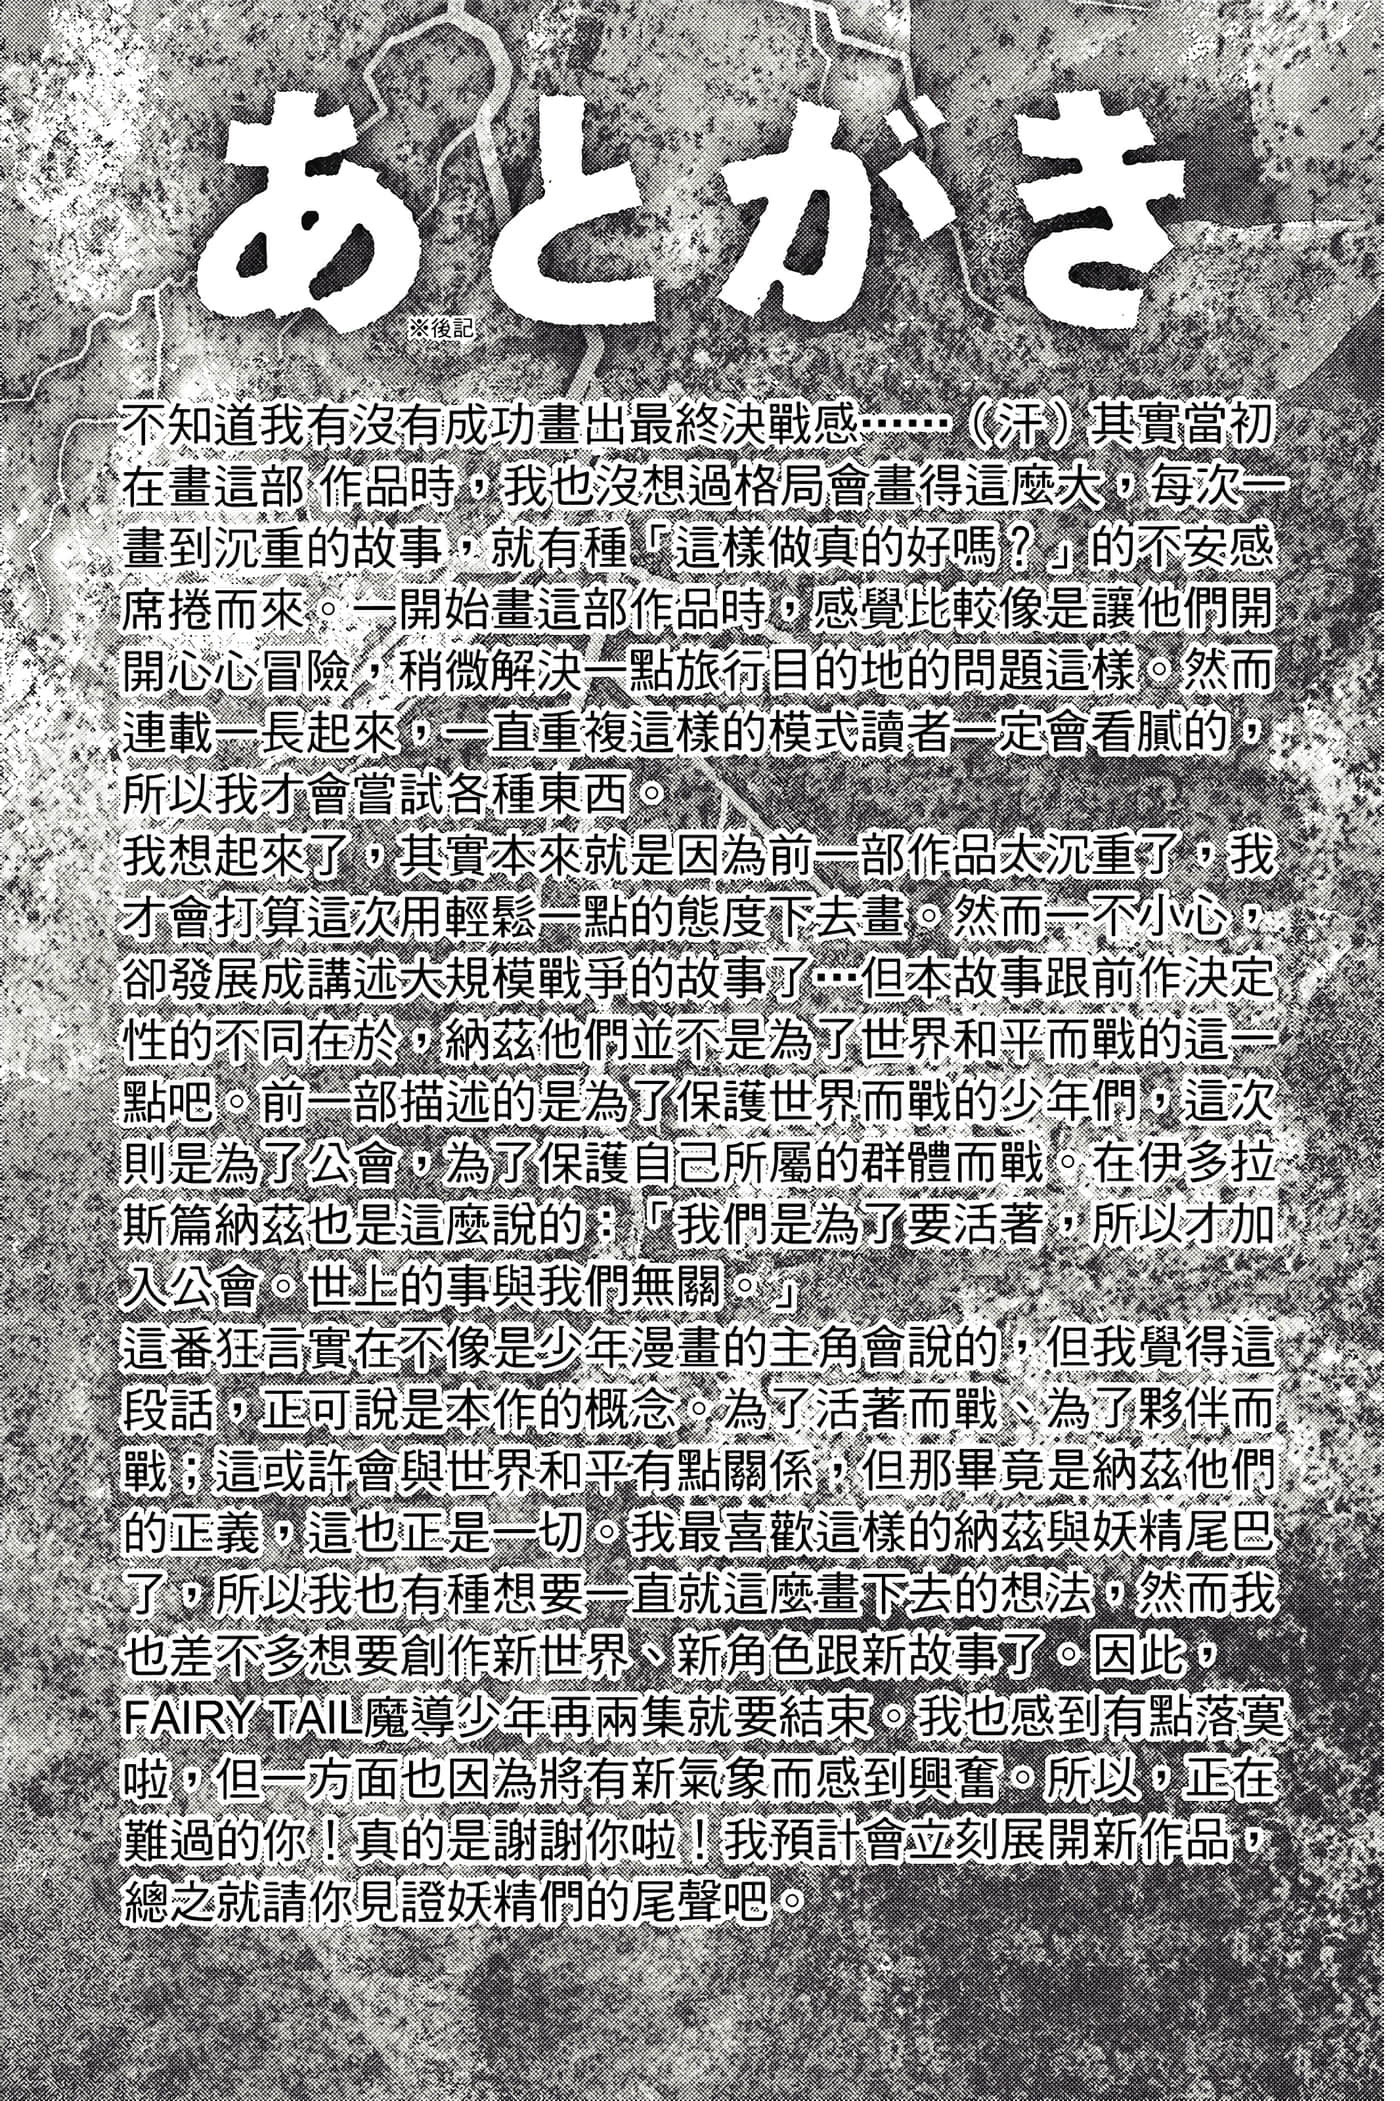 あとがき
※後記
不知道我有沒有成功畫出最終決戰感……（汗）其實當初
在畫這部 作品時，我也沒想過格局會畫得這麼大，每次一
畫到沉重的故事，就有種「這樣做真的好嗎？」的不安感
席捲而來。一開始畫這部作品時，感覺比較像是讓他們開
開心心冒險，稍微解決一點旅行目的地的問題這樣。然而
連載一長起來，一直重複這樣的模式讀者一定會看膩的，
所以我才會嘗試各種東西。
我想起來了，其實本來就是因為前一部作品太沉重了，我
才會打算這次用輕鬆一點的態度下去畫。然而一不小心，
卻發展成講述大規模戰爭的故事了…但本故事跟前作決定
性的不同在於，納茲他們並不是為了世界和平而戰的這一
點吧。前一部描述的是為了保護世界而戰的少年們，這次
則是為了公會，為了保護自己所屬的群體而戰。在伊多拉
斯篇納茲也是這麼說的：「我們是為了要活著，所以才加
入公會。世上的事與我們無關。」
這番狂言實在不像是少年漫畫的主角會說的，但我覺得這
段話，正可說是本作的概念。為了活著而戰、為了夥伴而
戰；這或許會與世界和平有點關係，但那畢竟是納茲他們
的正義，這也正是一切。我最喜歡這樣的納茲與妖精尾巴
了，所以我也有種想要一直就這麼畫下去的想法，然而我
也差不多想要創作新世界、新角色跟新故事了。因此，
FAIRY TAIL魔導少年再兩集就要結束。我也感到有點落寞
啦，但一方面也因為將有新氣象而感到興奮。所以，正在
難過的你！真的是謝謝你啦！我預計會立刻展開新作品，
總之就請你見證妖精們的尾聲吧。